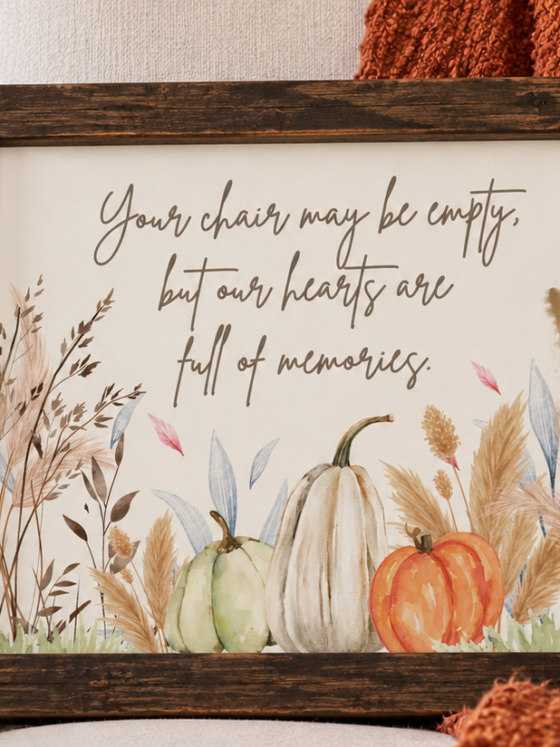 Your chair may be empty,
but our hearts are
full of memories.